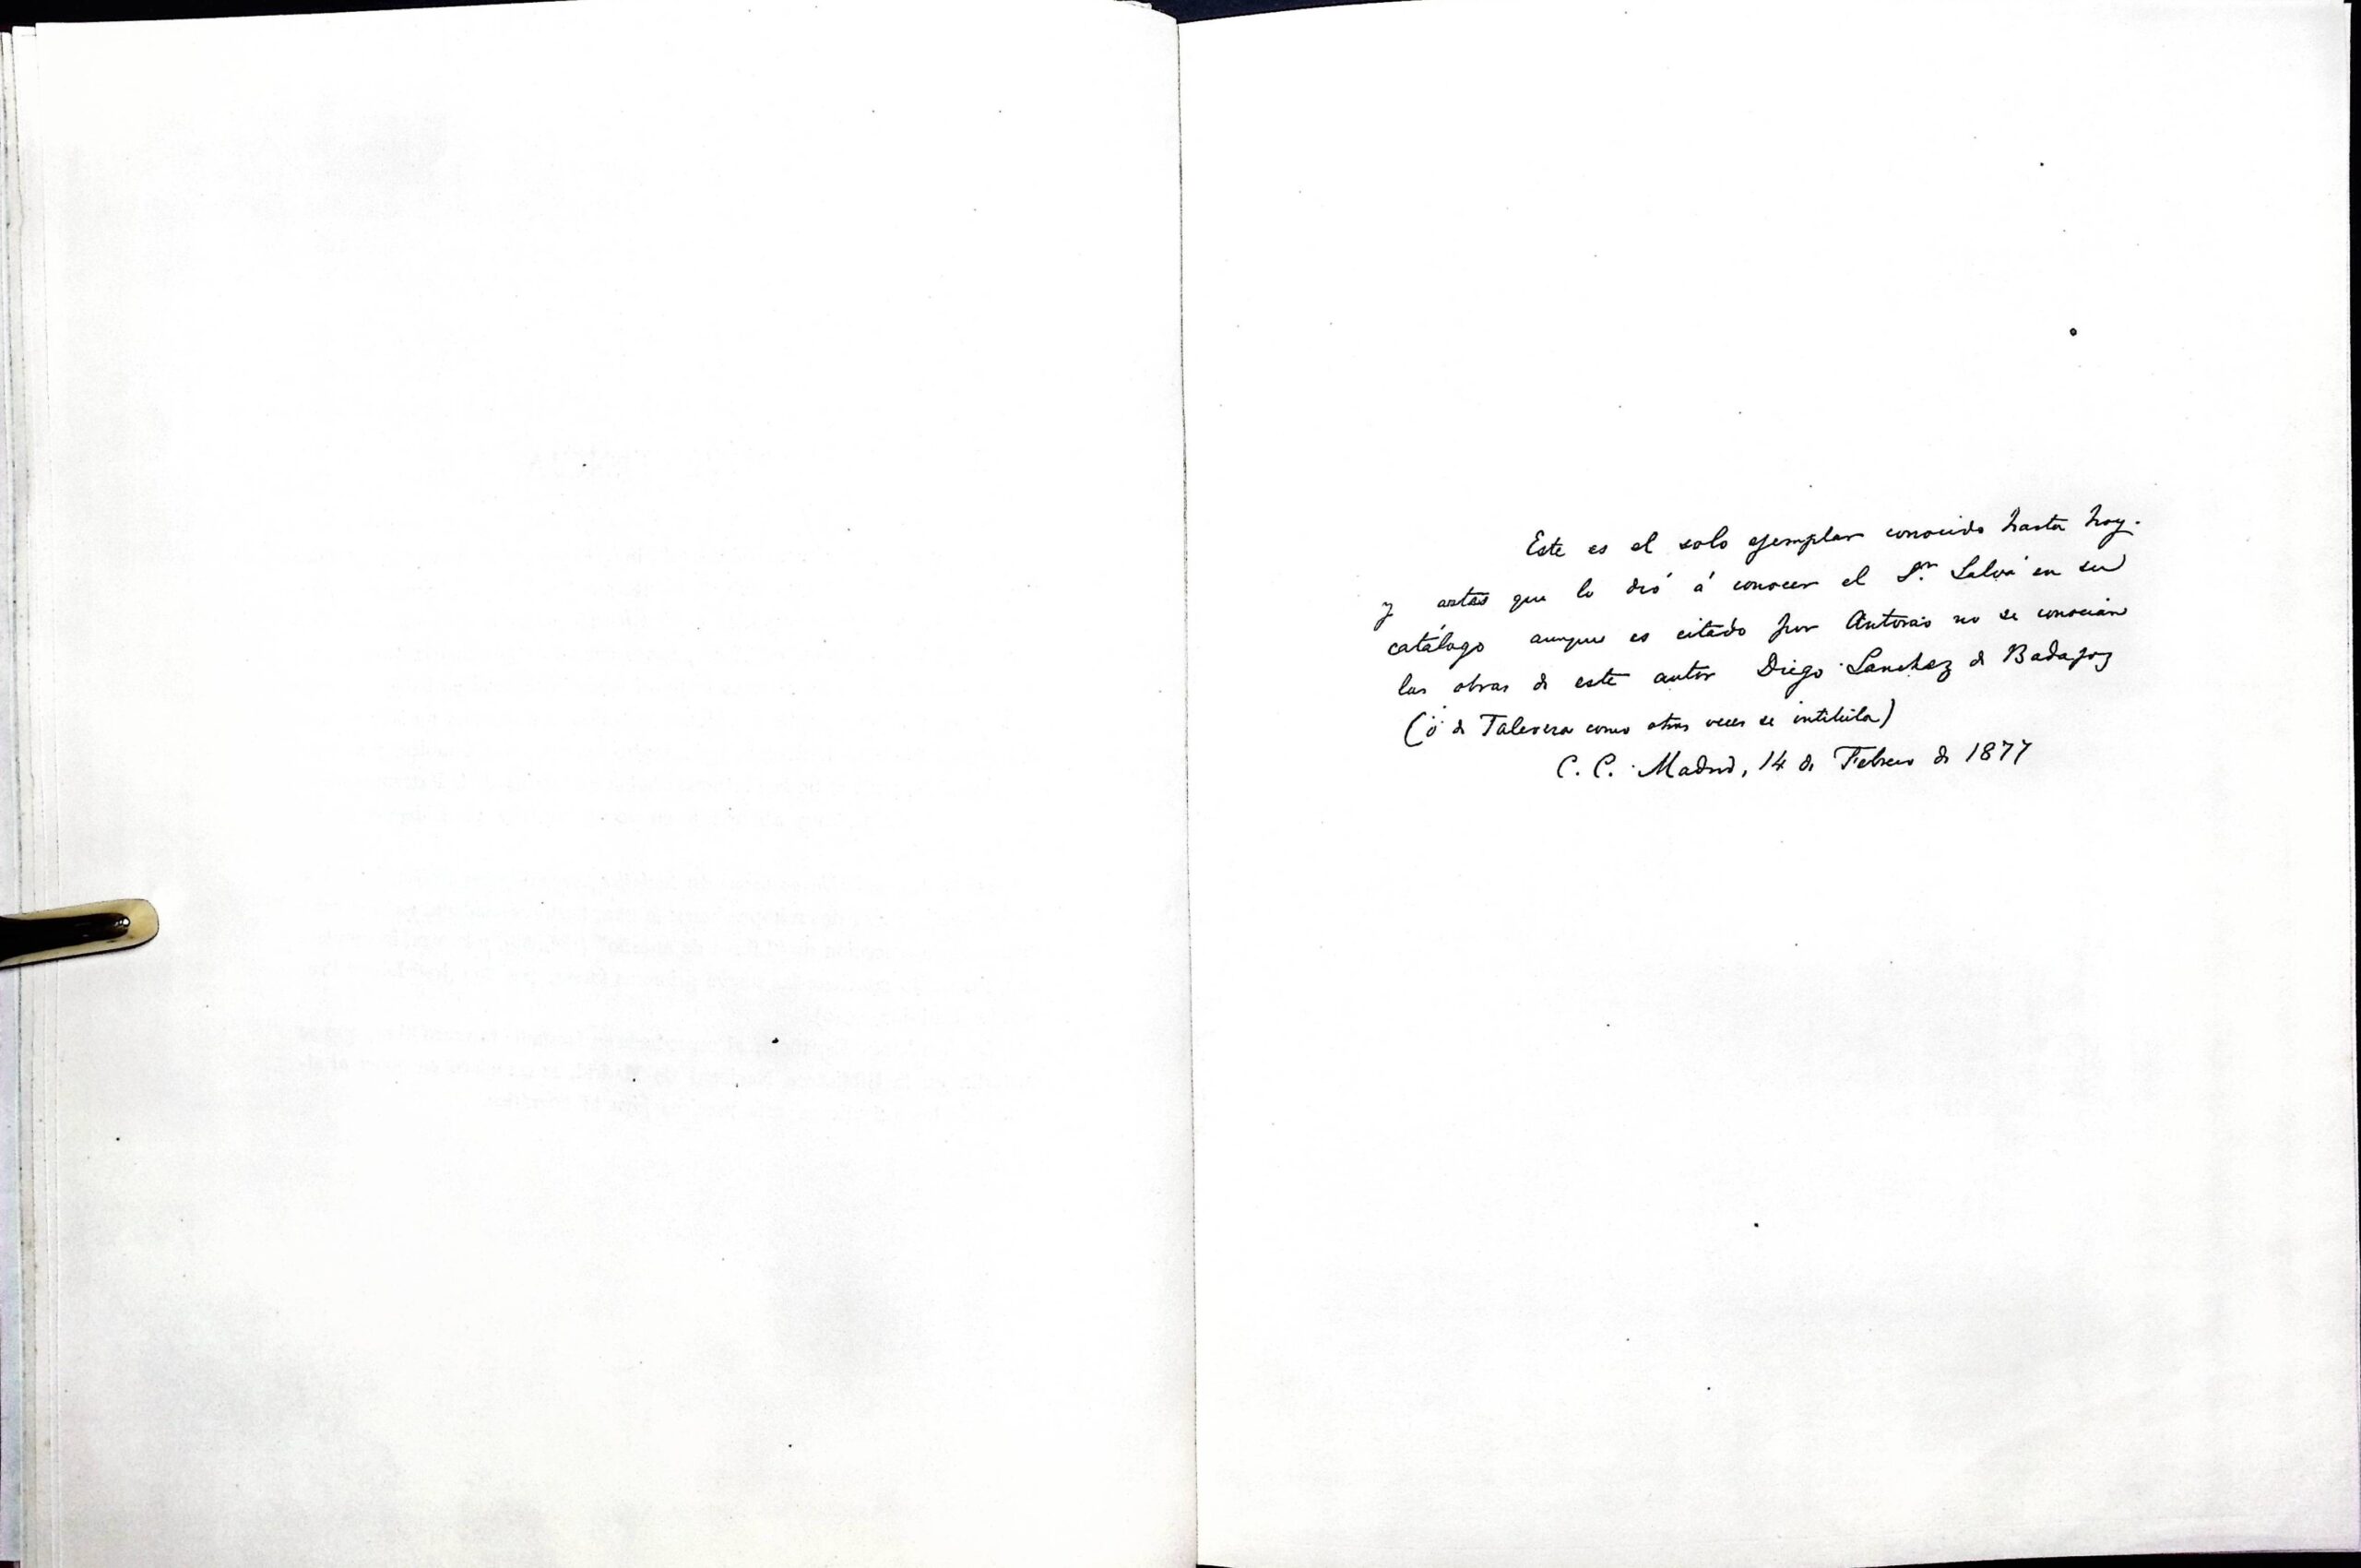 Este es el solo ejemplar conocido hasta hoy.
y antes que lo dió á conocer el Sr. Salvá en su
catálogo aunque es citado por Antonio no se conocian
las obras de este autor Diego Sanchez de Badajoz
(ó de Talavera como otras veces se intitula)
C. C. Madrid, 14 de Febrero de 1877